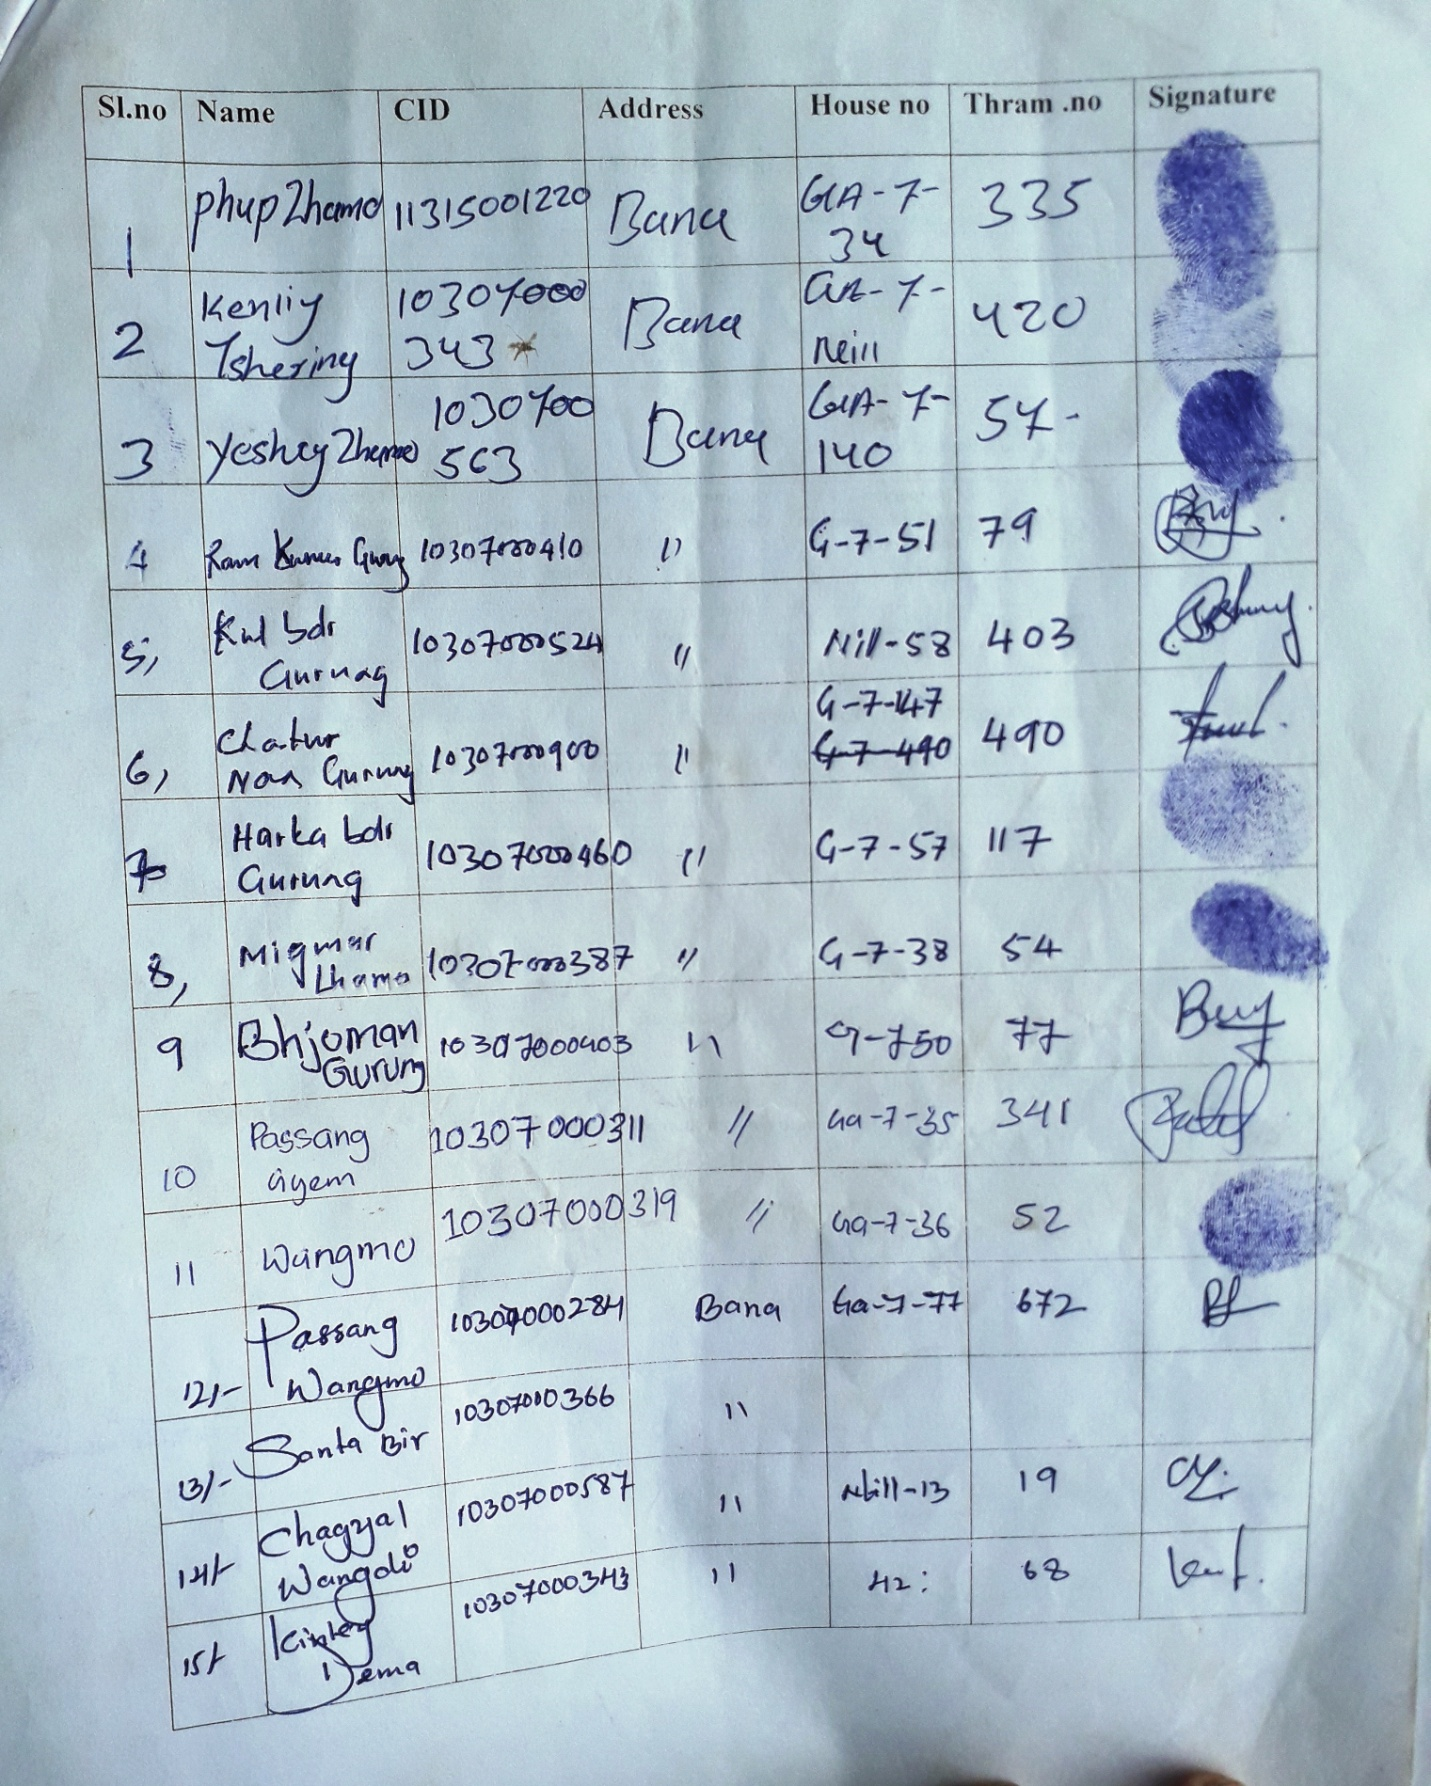 Sl.no Name CID Address House no Thram .no Signature
1 Phup Zhamo 11315001220 Bana GA-7-34 335
2 Tshering 10307000343 Bana 420
3 Yeshey Zhamo 1030700563 Bana GA-7-140 57-
4 Ram Kumar Gurung 10307000410 " G-7-51 79
5, Kul bdr Gurnag 10307000524 " Nill-58 403
6, Chatur Gurung 10307000900 " G-7-147 G-7-490 490
7 Harka bdr Gurung 10307000460 " G-7-57 117
8, Migmar Lhamo 10307000387 " G-7-38 54
9 Bhjoman Gurung 10307000403 " G-750 77
10 Passang Gyem 10307000311 " Ga-7-35 341
11 Wangmo 10307000319 " Ga-7-36 52
12/- Passang Wangmo 10307000284 Bana Ga-7-77 672
13/- Santa Bir 10307000366 "
14/- Chagyal Wangdi 10307000587 " 19
15/- Kinley Dema 10307000343 " 42: 68